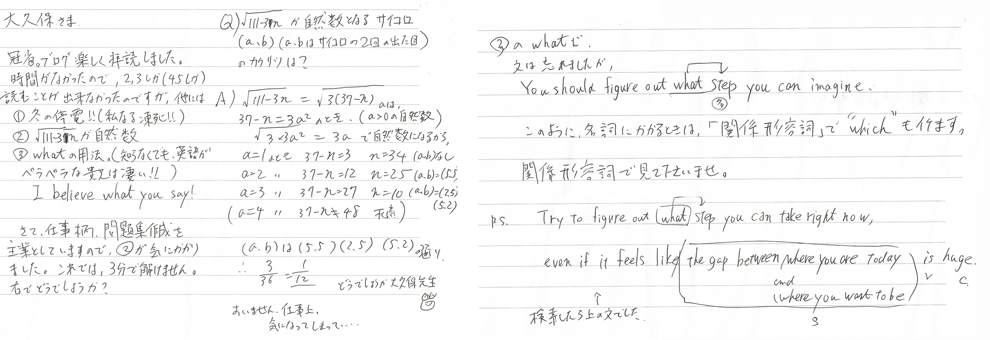 大久保さま
冠省。ブログ楽しく拝読しました。
時間がなかったので、2,3しか(4,5しか)
読むことが出来なかったのですが、他には
① 冬の停電!!(私なら凍死!!)
② √111-3n が自然数
③ whatの用法。(知らなくても、英語が
ペラペラな貴女は凄い!!)
I believe what you say!
さて、仕事柄、問題集作成を
主業としていますので、②が気にかかり
ました。これでは、3分で解けません。
右でどうでしょうか?
Q) √111-3n が自然数となる サイコロ
(a,b) (a,bはサイコロの2回の出た目)
のカクリツは?
A) √111-3n = √3(37-n)
37-n=3a² とを、(a>0の自然数)
aは、
√3・3a² = 3a で自然数になるから、
a=1のとき 37-n=3 n=34 (a,b)なし
a=2 〃 37-n=12 n=25 (a,b)=(5,5)
a=3 〃 37-n=27 n=10 (a,b)=(2,5)
(5,2)
(a=4 〃 37-n=48 不適)
(a,b)は(5,5)(2,5)(5,2)の3通り.
∴ 3/36 = 1/12
どうでしょうか 大久保先生
すいません。仕事上、
気になってしまって・・・・
③ a whatで、
文は忘れましたが、
You should figure out what step you can imagine.
③
このように、名詞にかかるときは、「関係形容詞」で "which"も行きます。
関係形容詞で見て下さいませ。
P.S. Try to figure out what step you can take right now,
even if it feels like the gap between where you are today
and
where you want to be
is huge.
V C
S
↑
検索したら上の文でした。